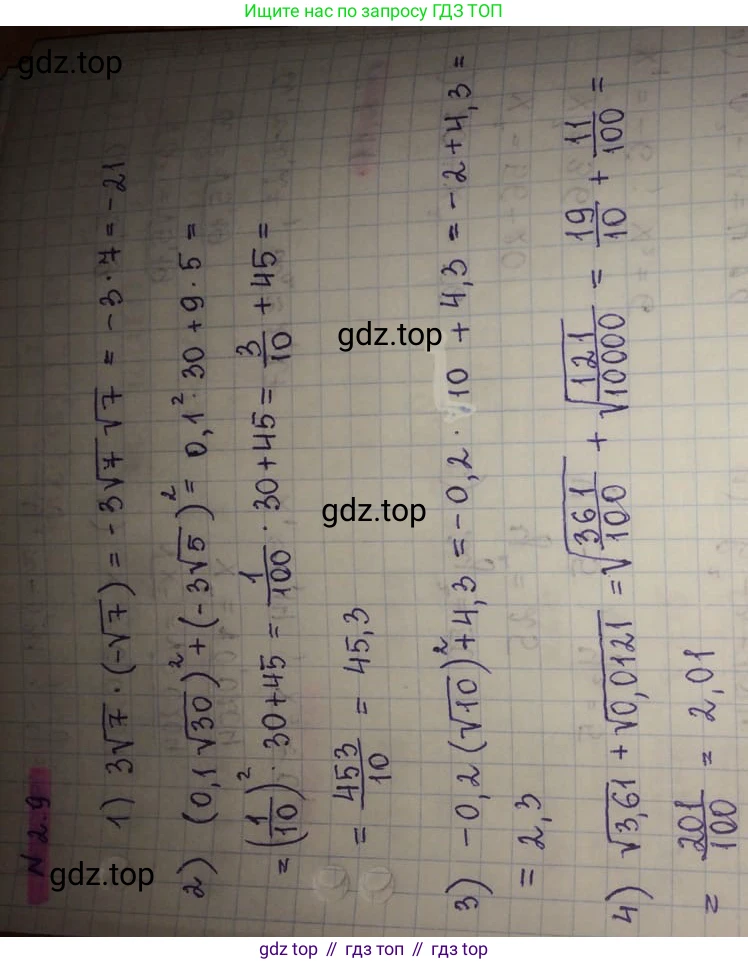 Ищите нас по запросу ГДЗ ТОП
gdz.top
N 2.9
1) 3√7 · (-√7) = -3√7 √7 = -3 · 7 = -21
2) (0,1√30)² + (-3√5)² = 0,1² · 30 + 9 · 5 =
= (1/10)² · 30 + 45 = 1/100 · 30 + 45 = 3/10 + 45 =
= 453/10 = 45,3
3) -0,2(√10)² + 4,3 = -0,2 · 10 + 4,3 = -2 + 4,3 =
= 2,3
4) √3,61 + √0,0121 = √361/100 + √121/10000 = 19/10 + 11/100 =
= 201/100 = 2,01
gdz.top
gdz.top
gdz.top
gdz top // гдз топ // гдз top